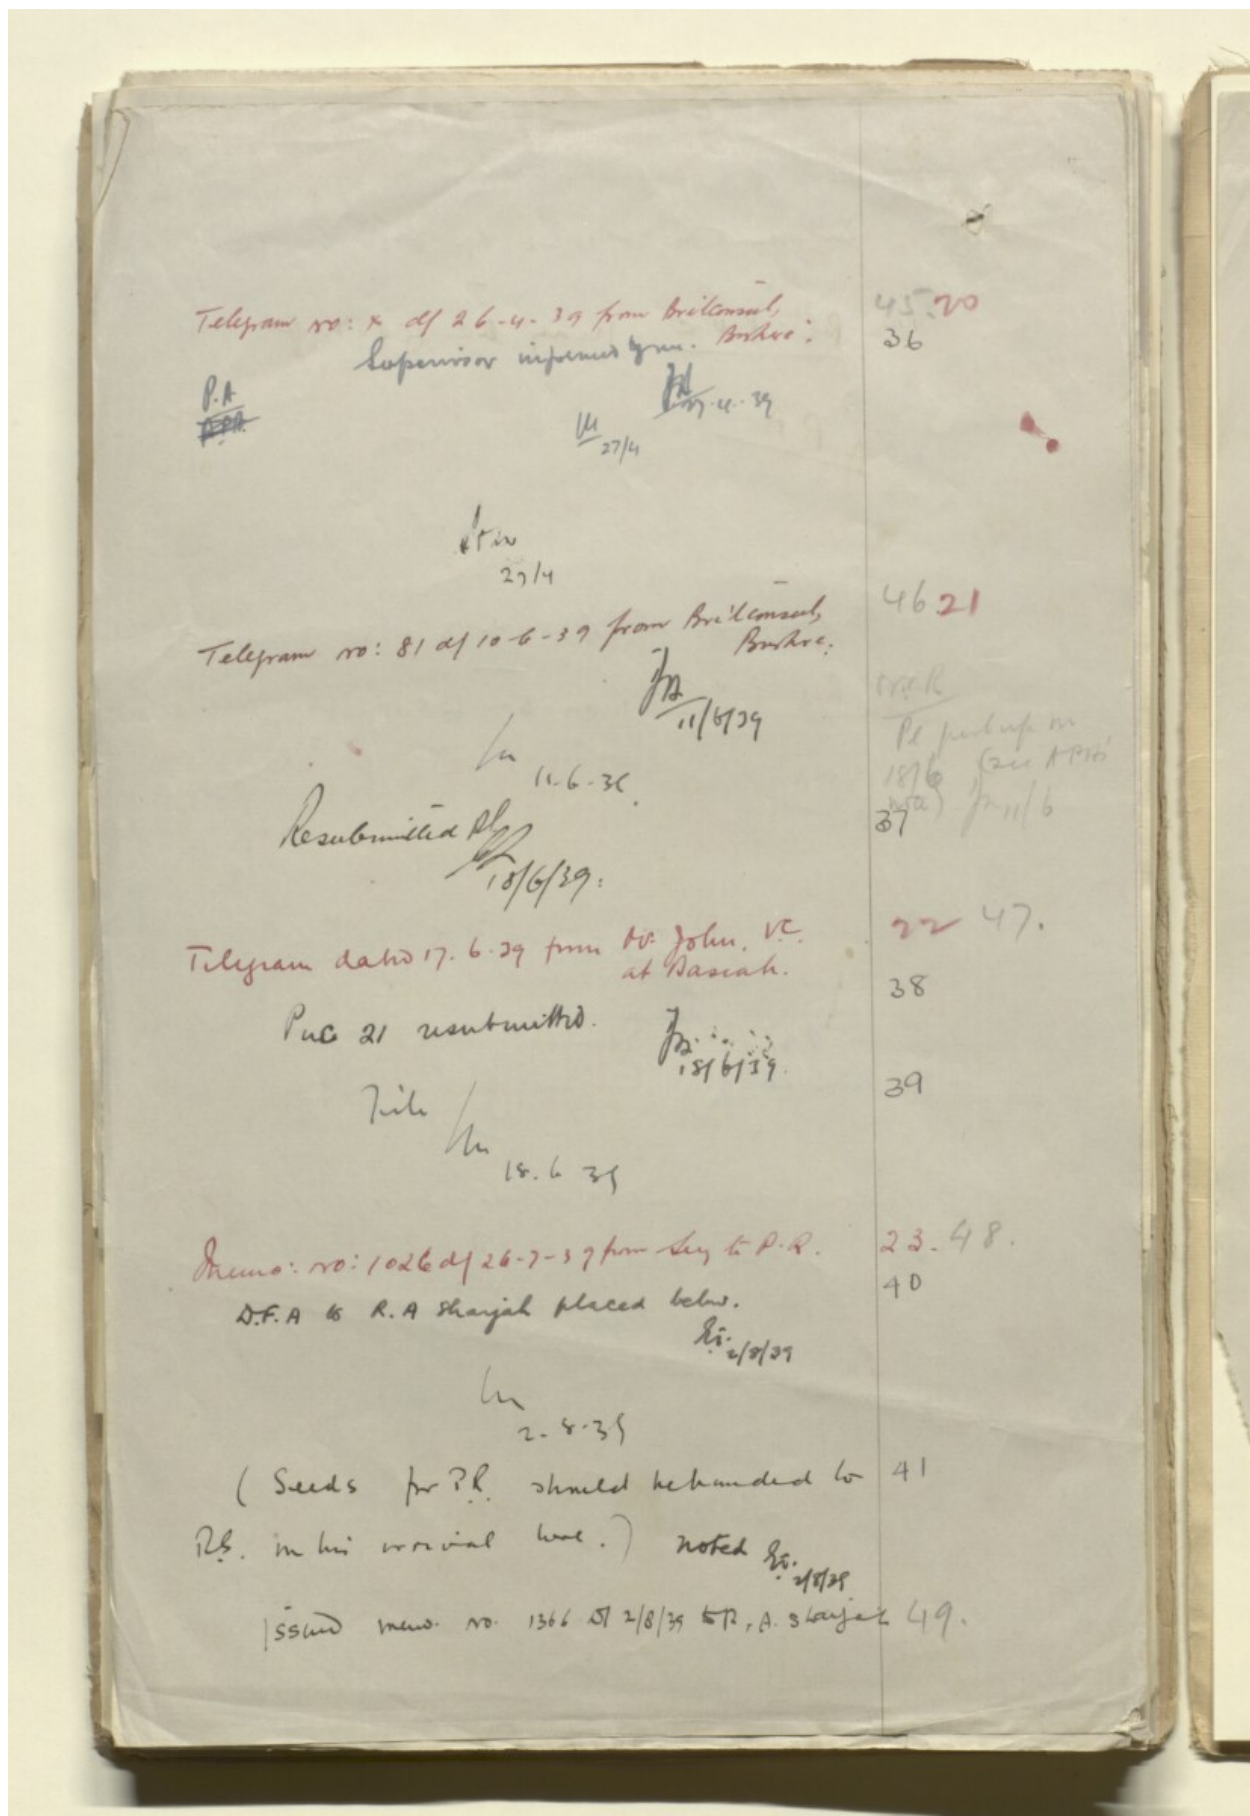 Telegram no: x d/ 26-4-39 from Britconsul, 45. 20
Bushire.
Supervisor informed 36
P.A
27-4-39
27/4
27/4
Telegram no: 81 d/ 10-6-39 from Britconsul, 46 21
Bushire.
11/6/39
Pl put up on
18/6 (see APA's
11/6
11-6-39.
37
Resubmitted Pl
18/6/39.
Telegram dated 17.6.39 from Dr. John, V.C. 22 47.
at Basrah.
38
PUC 21 resubmitted.
18/6/39.
39
File
18.6 39
Memo: no: 1026 d/ 26-7-39 from Secy to P.R. 23. 48.
40
D.F.A to R.A Sharjah placed below.
2/8/39
2-8-39
( Seeds for P.R. should be handed to 41
on his arrival here.) noted
2/8/39
Issued memo. no. 1366 d/ 2/8/39 to R.A. Sharjah 49.